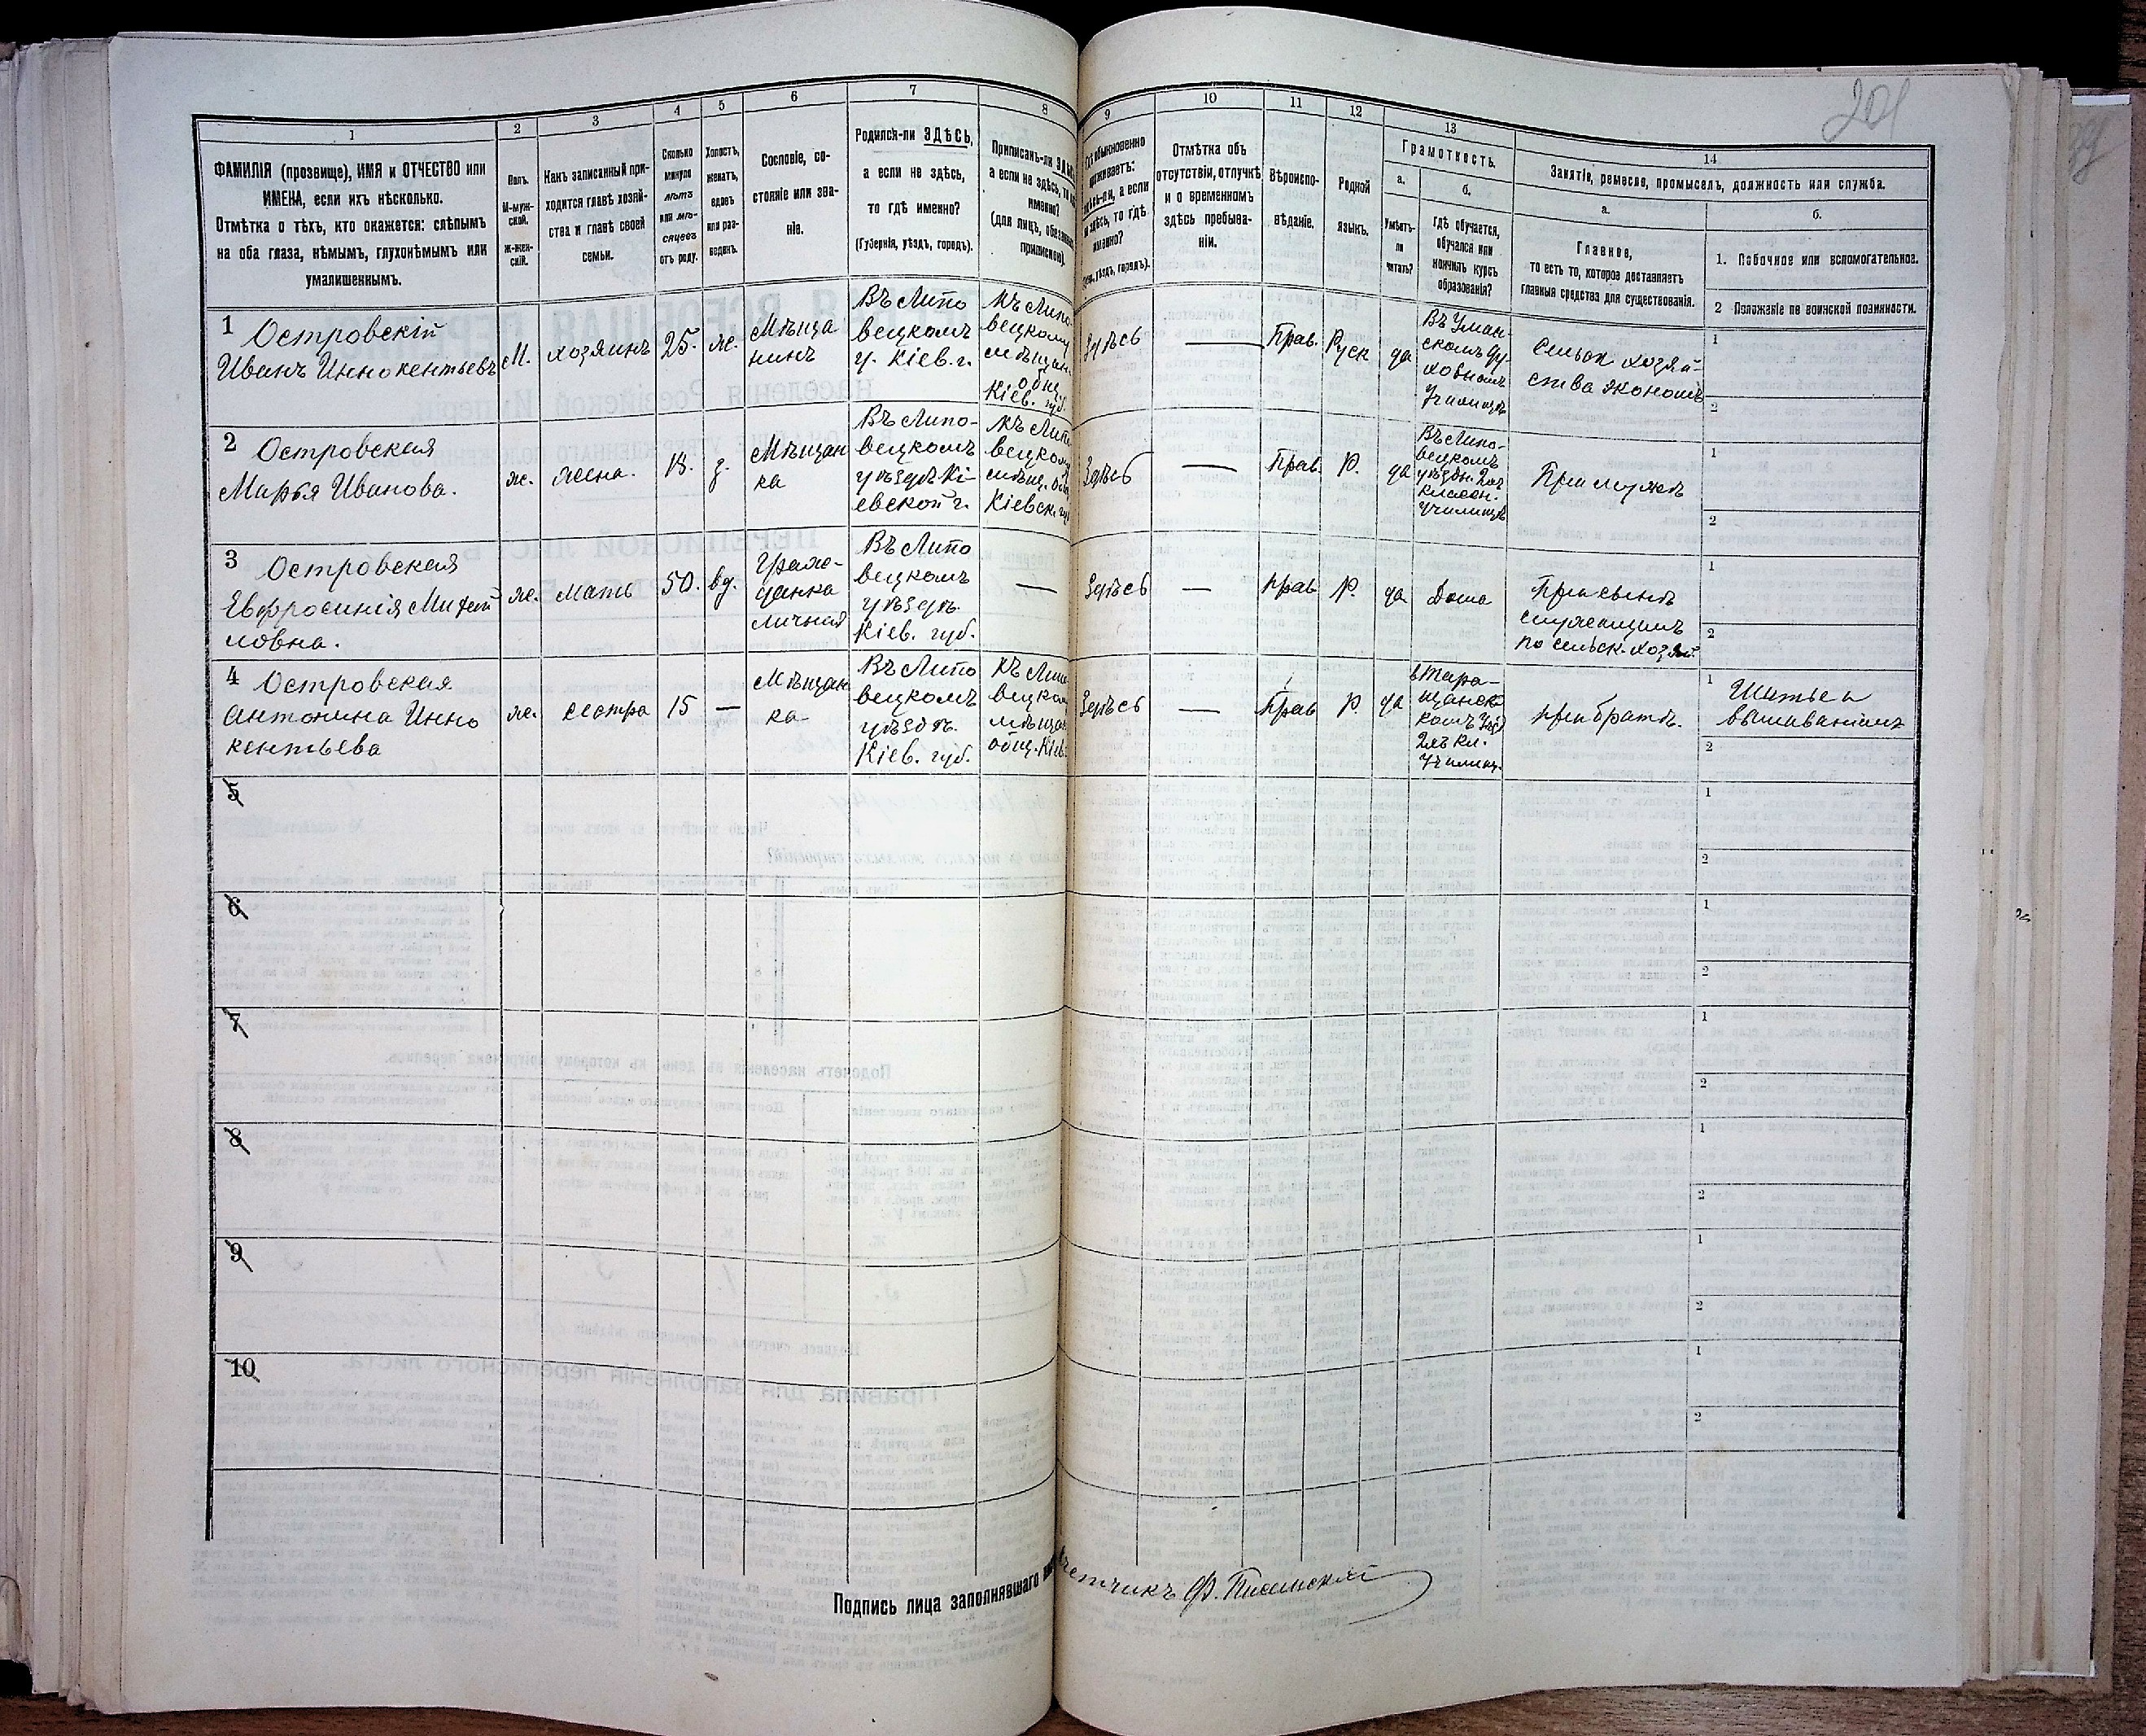 201
1
ФАМИЛІЯ (прозвище), ИМЯ и ОТЧЕСТВО или
ИМЕНА, если ихъ нѣсколько.
Отмѣтка о тѣхъ, кто окажется: слѣпымъ
на оба глаза, нѣмымъ, глухонѣмымъ или
умалишеннымъ.
2
Полъ.
М-муж-
ской.
Ж-жен-
скій.
3
Какъ записанный при-
ходится главѣ хозяй-
ства и главѣ своей
семьи.
4
Сколько
минуло
лѣтъ
или мѣ-
сяцевъ
отъ роду.
5
Холостъ,
женатъ,
вдовъ
или раз-
веденъ.
6
Сословіе, со-
стояніе или зва-
ніе.
7
Родился-ли ЗДѢСЬ,
а если не здѣсь,
то гдѣ именно?
(Губернія, уѣздъ, городъ).
8
Приписанъ-ли
а если не здѣсь,
именно?
(для лицъ,
припискою).
9
обыкновенно
а если
здѣсь, то гдѣ
именно?
уѣздъ, городъ).
10
Отмѣтка объ
отсутствіи, отлучкѣ
и о временномъ
здѣсь пребыва-
ніи.
11
Вѣроиспо-
вѣданіе.
12
Родной
языкъ.
13
Грамотность.
а.
Умѣетъ-
ли
читать?
б.
Гдѣ обучается,
обучался или
кончилъ курсъ
образованія?
14
Занятіе, ремесло, промыселъ, должность или служба.
а.
Главное,
то есть то, которое доставляетъ
главныя средства для существованія.
б.
1. Побочное или вспомогательное.
2 Положеніе по воинской повинности.
1 Островскій
Иванъ Иннокентьевъ
М.
хозяинъ
25.
ж.
Мѣща
нинъ
Въ Липо
вецкомъ
у. Кіев. г.
Къ Липо-
вецкому
мѣщан.
общ.
Кіев. губ.
Здѣсь
—
Прав.
Руск
да
Въ Уман-
скомъ Ду-
ховномъ
Училищѣ
Сельск хозяй-
ства экономъ
1
2
2 Островская
Марья Иванова.
ж.
жена.
18.
з.
Мѣщан
ка
Въ Липо-
вецкомъ
уѣздѣ Кі-
евской г.
Къ Липо
вецком
мѣщ.
Кіевск.
Здѣсь
—
Прав.
Р.
да
Въ Липо-
вецкомъ
уѣздн. 2хъ
классн.
училищѣ
При мужѣ
1
2
3 Островская
Евфросинія Михай
ловна.
ж.
мать
50.
вд.
Граж-
данка
личная
Въ Липо
вецкомъ
уѣздѣ.
Кіев. губ.
—
Здѣсь
—
прав
Р.
да
Дома
При сынѣ
служащимъ
по сельск. хозяй.
1
2
4 Островская
Антонина Инно
кентьева
ж.
сестра
15
—
Мѣщан
ка
Въ Липо
вецкомъ
уѣздѣ.
Кіев. губ.
Къ Липо
вецком
мѣщан
общ. Кіев.
Здѣсь
—
прав
Р.
да
в Тара-
щанс-
комъ
2хъ кл.
Училищ.
при братѣ.
1 Шитье и
вышиваніемъ
2
5
1
2
6
1
2
7
1
2
8
1
2
9
1
2
10
1
2
Подпись лица заполнявшаго
счетчикъ Ф.